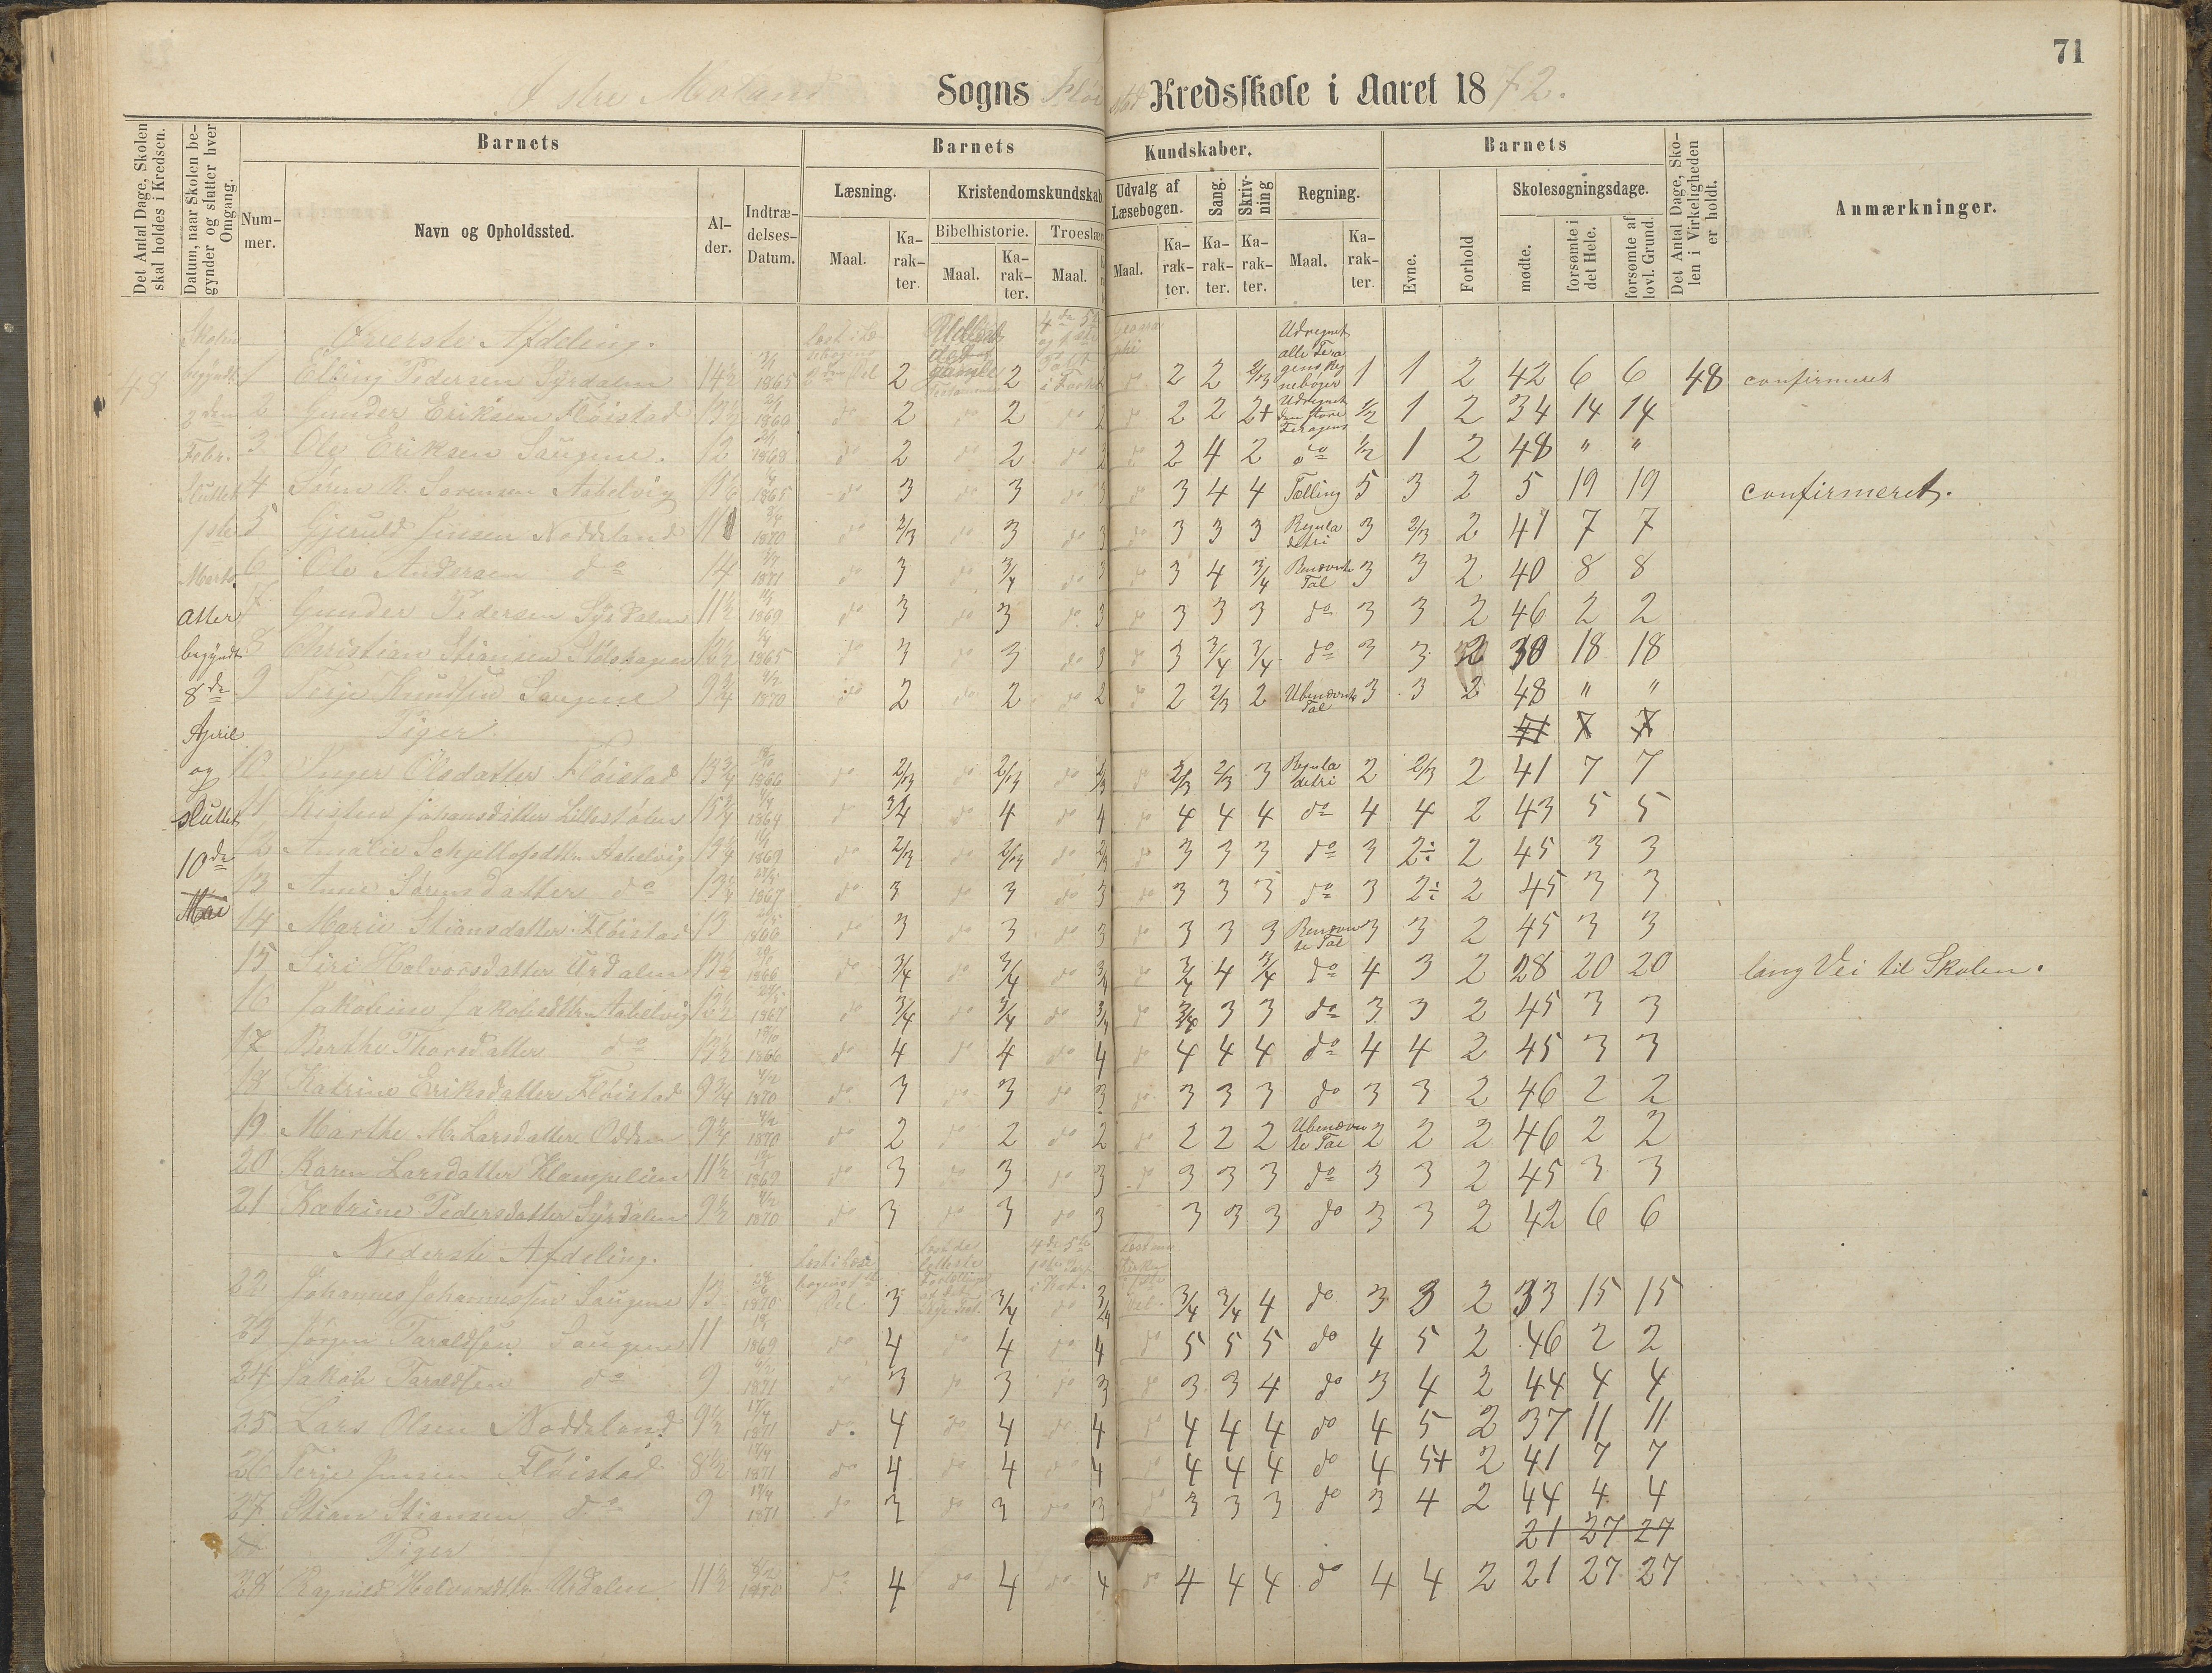 71
Østre Moland Sogns Fløistad Kredsskole i Aaret 1872.
Det Antal Dage, Skolen skal holdes i Kredsen.
Datum, naar Skolen begynder og slutter hver Omgang.
Barnets
Nummer.
Navn og Opholdssted.
Alder.
Indtrædelses-Datum.
Barnets Kundskaber.
Læsning.
Maal.
Karakter.
Kristendomskundskab.
Bibelhistorie.
Maal.
Karakter.
Troeslær
Maal.
Udvalg af Læsebogen.
Maal.
Karakter.
Sang.
Karakter.
Skrivning
Karakter.
Regning.
Maal.
Karakter.
Barnets
Evne.
Forhold
Skolesøgningsdage.
mødte.
forsømte i det Hele.
forsømte af lovl. Grund.
Det Antal Dage, Skolen i Virkeligheden er holdt.
Anmærkninger.
48
Skolen begyndt
Febr.
Sluttet
1ste
Marts
atter
begyndt
8de
April
og
sluttet
10de
Mai
Øverste Afdeling.
Udregnet alle Feragens Regnebøger
1 Elling Pedersen Syrdalen 14½ 1865 2 2 do 2 2 2/3 1 1 2 42 6 6 48 confirmeret
2 Gunder Eriksen Fløistad 13½ 1866 do 2 do 2 do 2 do 2 2 2+ Udregnet den store Feragens ½ 1 2 34 14 14
3 Ole Eriksen Saugene. 12 1868 do 2 do 2 do 2 do 2 4 2 do ½ 1 2 48 " "
4 Søren Sørensen Aabelvig 1865 do 3 do 3 do 3 do 3 4 4 Tælling 5 3 2 5 19 19 confirmeret.
5 Gjeruld Jensen Noddeland 11 1870 do 2/3 do 3 do 3 do 3 3 3 Regula detri 3 2/3 2 41 7 7
6 Ole Andersen do 14 1871 do 3 do 3/4 do 3 do 3 4 3/4 Benævnte Tal 3 3 2 40 8 8
7 Gunder Pedersen Syrdalen 11½ 1869 do 3 do 3 do 3 do 3 3 3 do 3 3 2 46 2 2
8 Christian Stiansen 1865 do 3 do 3 do 3 do 3 3/4 3/4 do 3 3 2 30 18 18
9 Terje Knudsen Saugene 9¾ 1870 do 2 do 2 do 2 do 2 2/3 2 Ubenævnte Tal 3 3 2 48 " "
Piger. 41 7 7
10 Inger Olsdatter Fløistad 13¾ 1866 do 2/3 do 2/3 do 2/3 do 2/3 2/3 3 Regula detri 2 2/3 2 41 7 7
11 Kisten Johansdatter 15¾ 1864 do 3/4 do 4 do 4 do 4 4 4 do 4 4 2 43 5 5
12 Amalie Aabelvig 13¼ 1869 do 2/3 do 2/3 do 2/3 do 3 3 3 do 3 2÷ 2 45 3 3
13 Anne Sørensdatter do 13½ 1867 do 3 do 3 do 3 do 3 3 3 do 3 2÷ 2 45 3 3
14 Marie Stiansdatter Fløistad 13 1866 do 3 do 3 do 3 do 3 3 3 Benævnte Tal 3 3 2 45 3 3
15 Siri Halvorsdatter Urdalen 13½ 1866 do 3/4 do 3/4 do 3/4 do 3/4 4 3/4 do 4 3 2 28 20 20 lang Vei til Skolen.
16 Jakobine Jakobsdttr Aabelvig 12½ 1867 do 3/4 do 3/4 do 3/4 do 3/4 3 3 do 3 3 2 45 3 3
17 Berthe Thorsdatter do 13½ 1866 do 4 do 4 do 4 do 4 4 4 do 4 4 2 45 3 3
18 Katrine Eriksdatter Fløistad 9¾ 1870 do 3 do 3 do 3 do 3 3 3 do 3 3 2 46 2 2
19 Marthe M. Larsdatter Odden 9¼ 1870 do 2 do 2 do 2 do 2 2 2 Ubenævnte Tal 2 2 2 46 2 2
20 Karen Larsdatter Klampelien 11½ 1869 do 3 do 3 do 3 do 3 3 3 do 3 3 2 45 3 3
21 Katrine Pedersdatter Syrdalen 9½ 1870 do 3 do 3 do 3 3 3 3 do 3 3 2 42 6 6
Nederste Afdeling.
22 Johannes Johannessen Saugene 13 1870 3 3/4 do 3/4 3/4 3/4 4 do 3 3 2 33 15 15
23 Jørgen Taraldsen Saugene 11 1869 do 4 do 4 do 4 do 5 5 5 do 4 5 2 46 2 2
24 Jakob Taraldsen do 9 1871 do 3 do 3 do 3 do 3 3 4 do 3 4 2 44 4 4
25 Lars Olsen Noddeland 9½ 1871 do. 4 do 4 do 4 do 4 4 4 do 4 5 2 37 11 11
26 Terje Jensen Fløistad 8½ 1871 do 4 do 4 do 4 do 4 4 4 do 4 5+ 2 41 7 7
27 Stian Stiansen do 9 1871 do 3 do 3 do 3 do 3 3 3 do 3 4 2 44 4 4
21 27 27
Piger
28 Ragnild Halvorsdttr Urdalen 11½ 1870 do 4 do 4 do 4 do 4 4 4 do 4 4 2 21 27 27